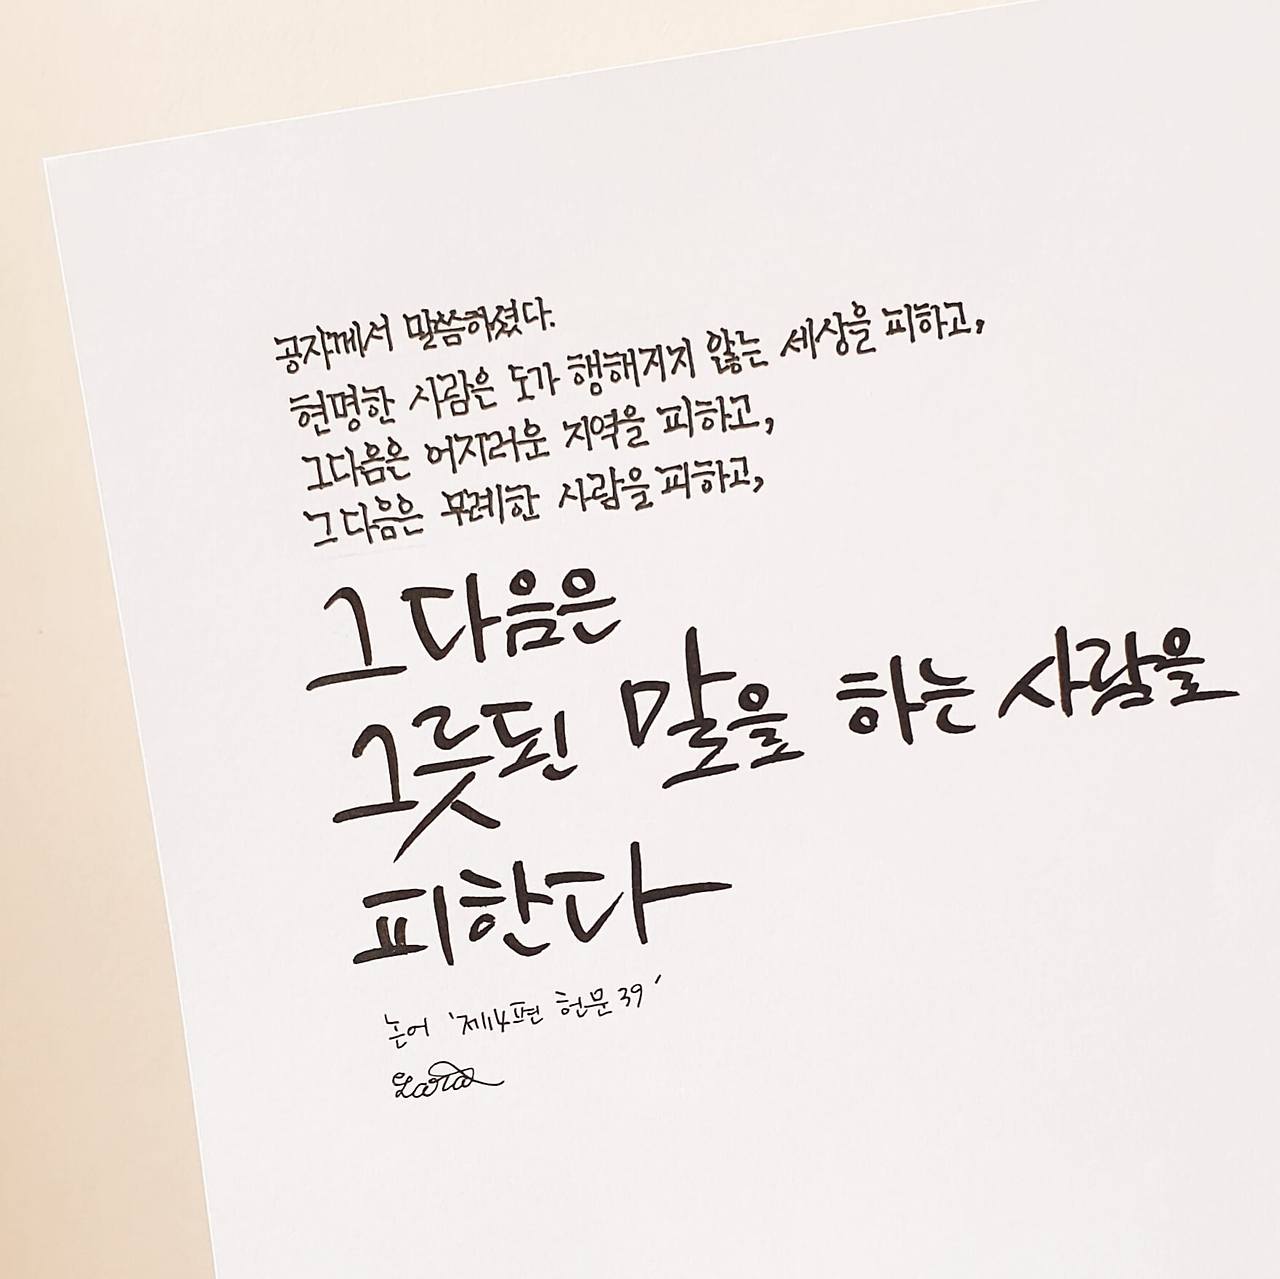 공자께서 말씀하셨다.
현명한 사람은 도가 행해지지 않는 세상을 피하고,
그다음은 어지러운 지역을 피하고,
그다음은 무례한 사람을 피하고,
그다음은
그릇된 말을 하는 사람을
피한다
논어 '제14편 헌문 39'
Lara